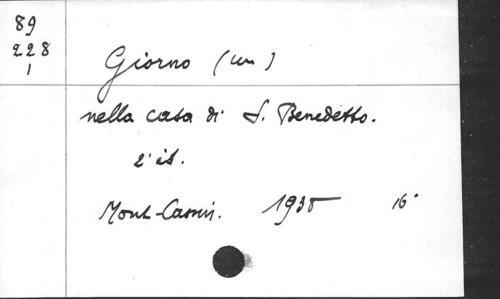 89
228
1
Giorno (un)
nella casa di S. Benedetto.
2ª
Mont-Cassin. 1935 16°